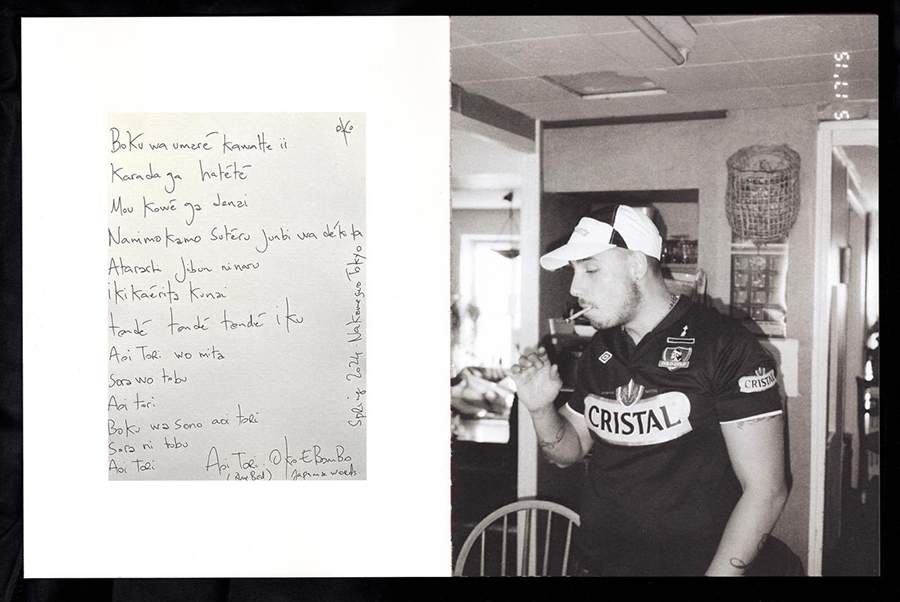 oko
Boku wa umaré kawatte ii
Karada ga hatété
Mou kowé ga denai
Nanimokamo Sutéru Junbi wa dékita
Atarashi Jibun ni naru
ikikaérita kunai
tondé tondé tondé iku
Aoi Tori wo mita
Sora wo tobu
Aoi tori
Boku wa sono aoi tori
Sora ni tobu
Aoi Tori
Aoi Tori. Oko Ebombo
(Blue Bird) Japanese words
Spring 2024. Nakameguro Tokyo
5 17'15
COLO-COLO
CRISTAL
CRISTAL